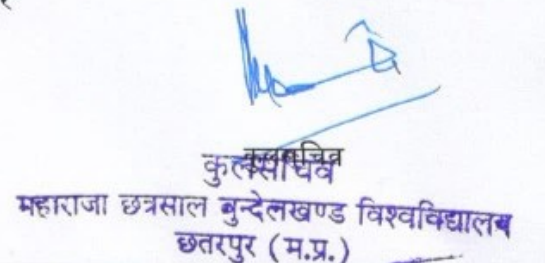 कुलसचिव
कुलसचिव
महाराजा छत्रसाल बुन्देलखण्ड विश्वविद्यालय
छतरपुर (म.प्र.)